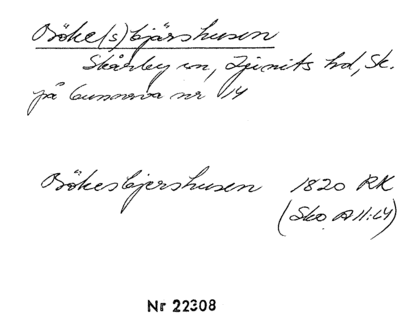 Böke(s)bjärshusen
Skårby sn, Ljunits hd, Sk.
på Gunnarva nr 14
Bökesbjershusen 1820 RK
(Sko A II:14)
Nr 22308